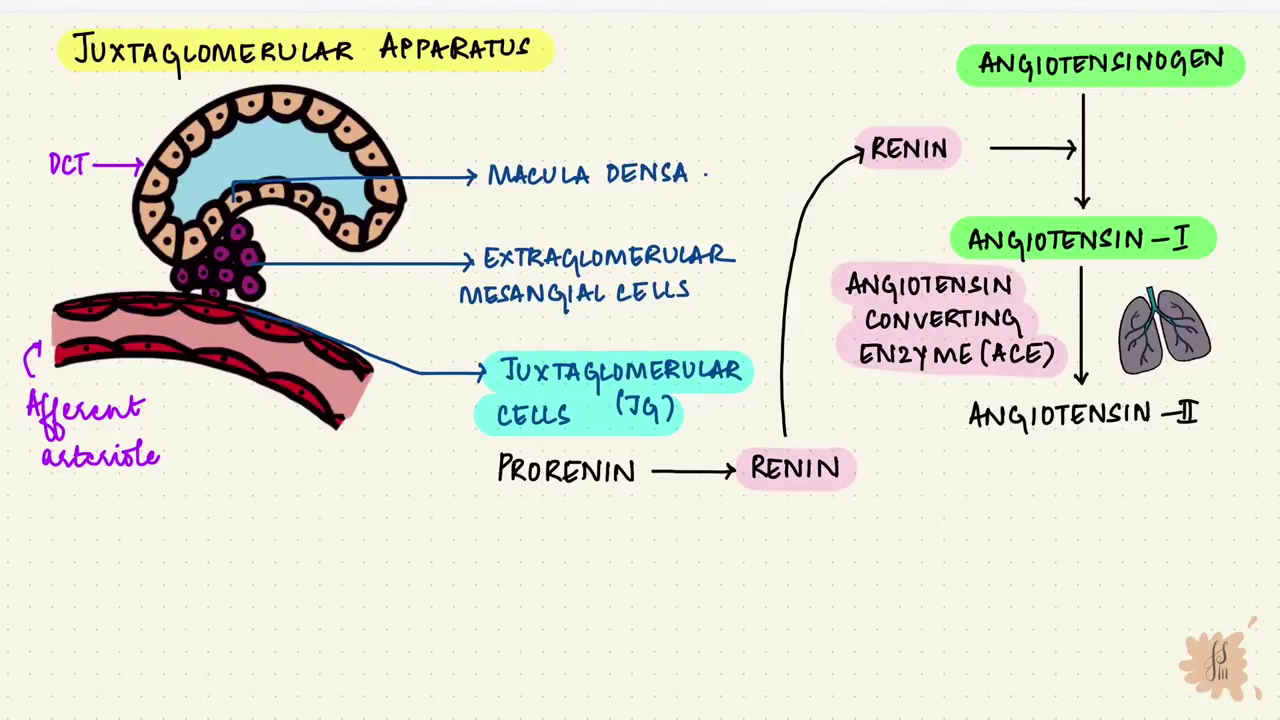 JUXTAGLOMERULAR APPARATUS
DCT
MACULA DENSA
EXTRAGLOMERULAR
MESANGIAL CELLS
JUXTAGLOMERULAR
CELLS (JG)
Afferent
arteriole
PRORENIN
RENIN
ANGIOTENSINOGEN
RENIN
ANGIOTENSIN - I
ANGIOTENSIN
CONVERTING
ENZYME (ACE)
ANGIOTENSIN - II